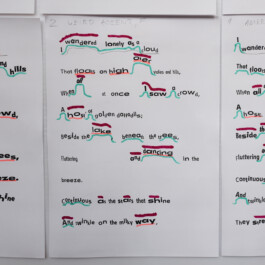 hills
wd,
ees,
eze.
hine
2
I wandered lonely as a cloud
That floats on high o'er vales and hills,
When all at once I saw a crowd,
A host of golden daffodils;
Beside the lake beneath the trees,
Fluttering and dancing in the
breeze.
Continuous as the stars that shine
And twinkle on the milky way,
I wander
That floa
When
A hos
Beside
Fluttering
Continuous
And twinkle
They stre